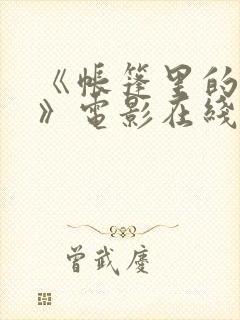 《帐篷里的
》电影在线
曾武庆